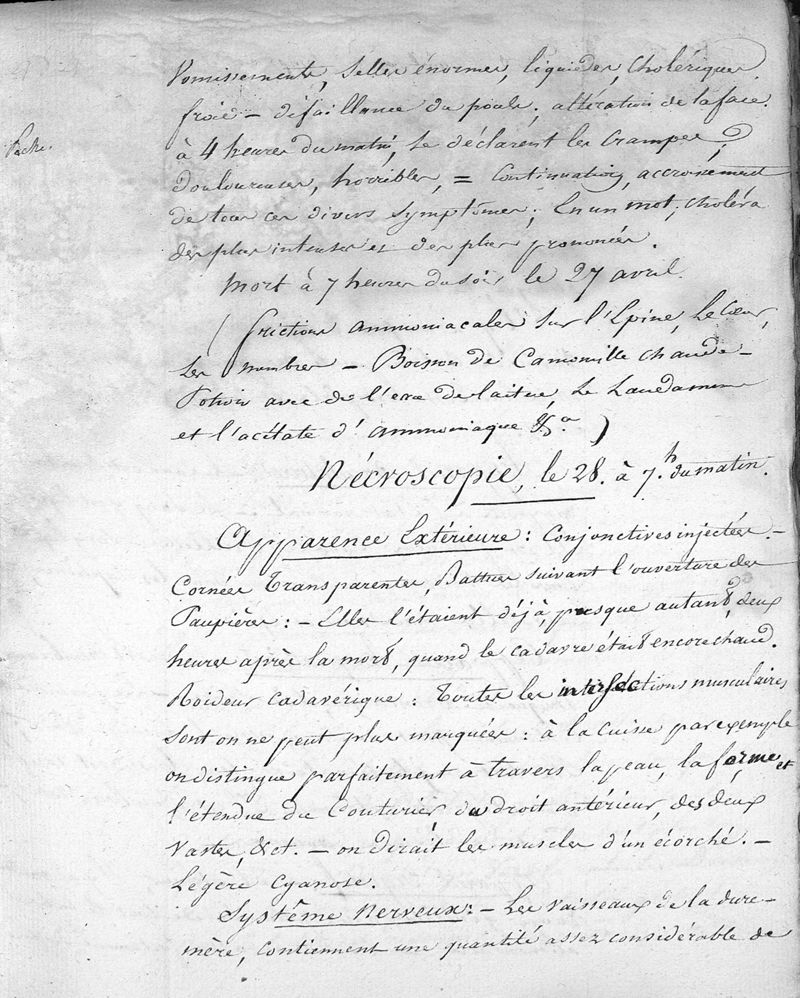 Vomissements, Selles énormes, liquides, Cholériques,
froid — défaillance du pouls, altération de la face.
à 4 heures du matin, se déclarent les Crampes,
douloureuses, horribles, = Continuation, accroissement
de tous ces divers Symptômes; En un mot, choléra
des plus intenses et des plus prononcés.
Mort à 7 heures du soir le 27 avril.
( frictions ammoniacales sur l'Epine, le Cœur,
les membres — Boisson de Camomille chaude —
Potion avec de l'eau de laitue, le Laudanum
et l'acétate d'ammoniaque &a )
Nécroscopie, le 28. à 7h du matin.
Apparence Extérieure : Conjonctives injectées. —
Cornées Transparentes, suivant l'ouverture des
Paupières : — Elles l'étaient déjà, presque autant, deux
heures après la mort, quand le cadavre était encore chaud.
Roideur Cadavérique : Toutes les intersections musculaires
sont on ne peut plus marquées : à la cuisse par exemple
on distingue parfaitement à travers la peau, la forme et
l'étendue du Couturier, du droit antérieur, des deux
Vastes, &ct. — on dirait les muscles d'un écorché. —
Légère Cyanose.
Système Nerveux : — Les vaisseaux de la dure-
mère, contiennent une quantité assez considérable de